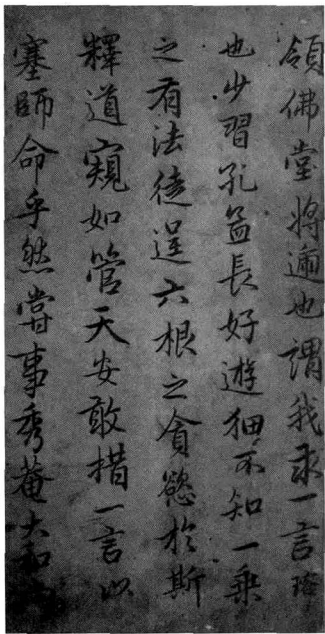 領佛堂將適也謂我求一言
也少習孔孟長好遊畋不知一乘
之有法徒逞六根之貪慾於斯
釋道窺如管天安敢措一言以
塞師命乎然嘗事秀菴大和